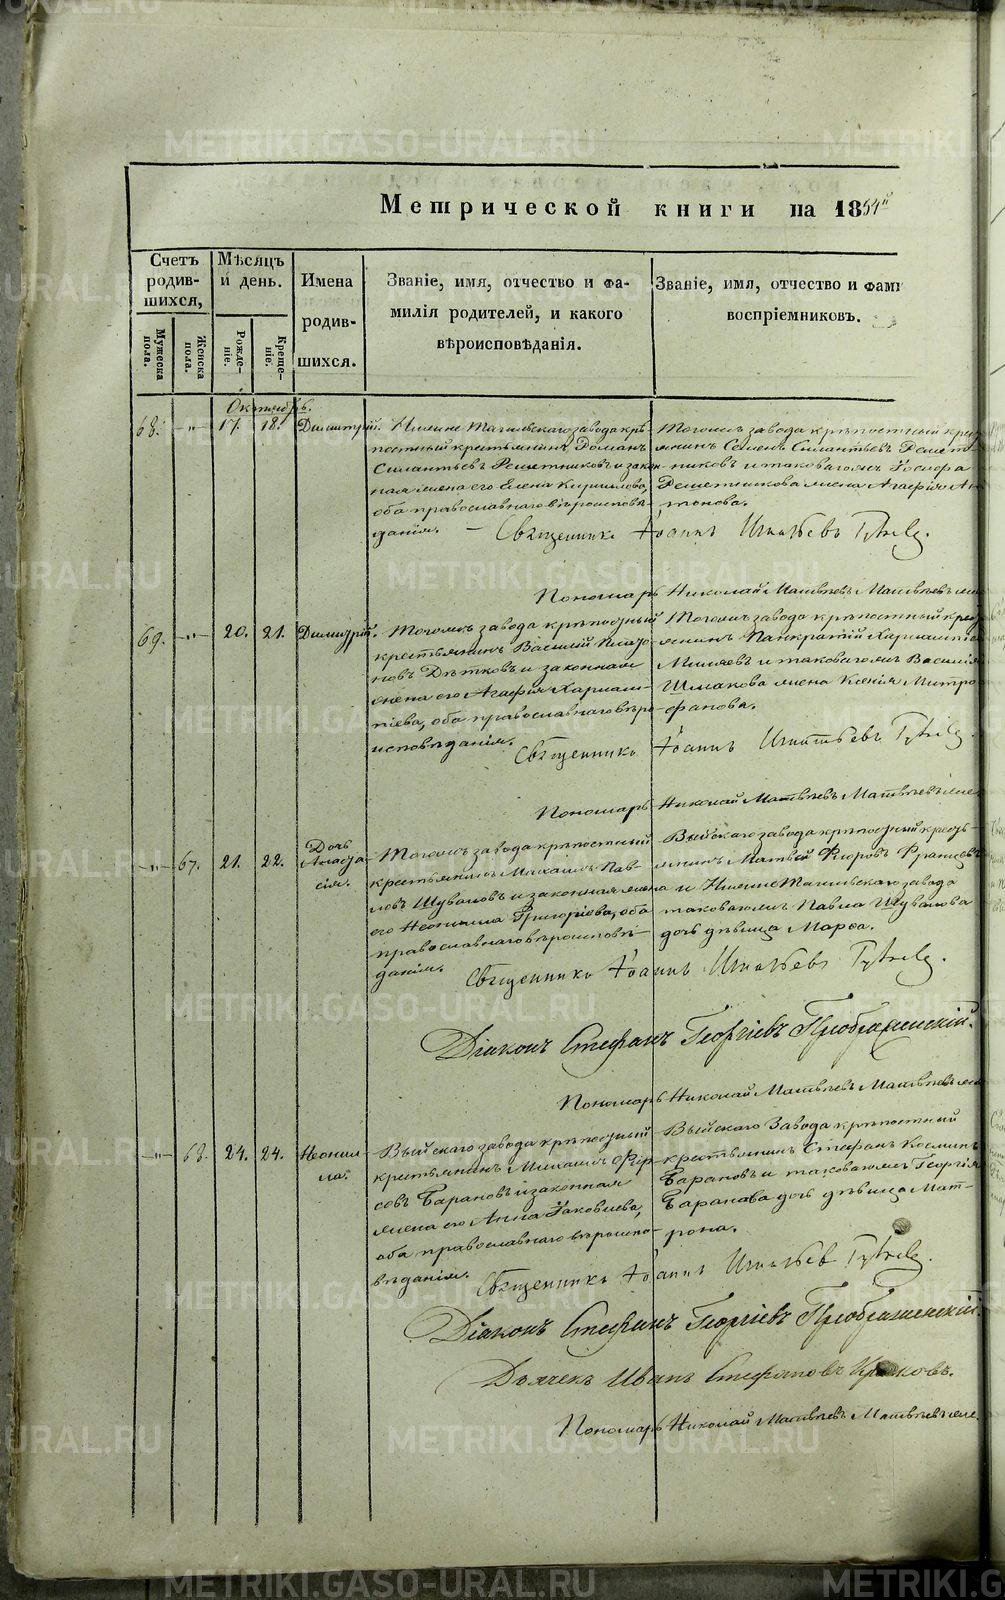 METRIKI.GASO-URAL.RU
Метрической книги на 1854й
Счетъ родив-шихся,
Мужеска пола.
Женска пола.
Мѣсяцъ и день.
Рожде-ніе.
Креще-ніе.
Имена родив-шихся.
Званіе, имя, отчество и фа-
милія родителей, и какого
вѣроисповѣданія.
Званіе, имя, отчество и фами
воспріемниковъ.
Октябрь.
68. -"- 17. 18. Димитрій.
Нижне Тагильскаго завода крѣ-
постный крестьянинъ Романъ
Силантьевъ Решетниковъ и закон-
ная жена его Елена Кирилова,
оба православнаго вѣроисповѣ-
данія.
Тогожъ завода крѣпостный крес
янинъ Семенъ Силантьевъ Решет-
никовъ и таковагожъ Іосифа
Решетникова жена Агафія Ан
тонова.
Священникъ Іоаннъ Игнатьевъ
Пономарь Николай Матвѣевъ
69. -"- 20. 21. Димитрій.
Тогожъ завода крѣпостный
крестьянинъ Василій
новъ Дѣтковъ и законная
жена его Агафія Харлам-
піева, оба православнаго вѣро-
исповѣданія.
Тогожъ завода крѣпостный крес
янинъ Панкратій Харлампіе
Миляевъ и таковагожъ Василія
Шмакова жена Ксенія Митро
фанова.
Священникъ Іоаннъ Игнатьевъ
Пономарь Николай Матвѣевъ
-"- 67. 21. 22. Дочь
Анаста-
сія.
Тогожъ завода крѣпостный
крестьянинъ Михаилъ Пав-
ловъ Шуваловъ и законная жена
его Неонила Григорьева, оба
православнаго вѣроисповѣ-
данія.
Выйскаго завода крѣпостный кресть-
янинъ Матвей Флоровъ Францовъ
и Нижне Тагильскаго завода
таковагожъ Павла Шувалова
дочь дѣвица Марфа.
Священникъ Іоаннъ Игнатьевъ
Діаконъ Стефанъ Георгіевъ Преображенскій.
Пономарь Николай Матвѣевъ
-"- 68. 24. 24. Неонил-
ла.
Выйскаго завода крѣпостный
крестьянинъ Михаилъ Фир-
совъ Барановъ и законная
жена его Анна Іаковлева,
оба православнаго вѣроиспо-
вѣданія.
Выйскаго Завода крѣпостный
крестьянинъ Стефанъ Косминъ
Барановъ и таковагожъ Георгія
Баранова дочь дѣвица Мат-
рона.
Священникъ Іоаннъ Игнатьевъ
Діаконъ Стефанъ Георгіевъ Преображенскій.
Дьячекъ Иванъ Стефановъ
Пономарь Николай Матвѣевъ